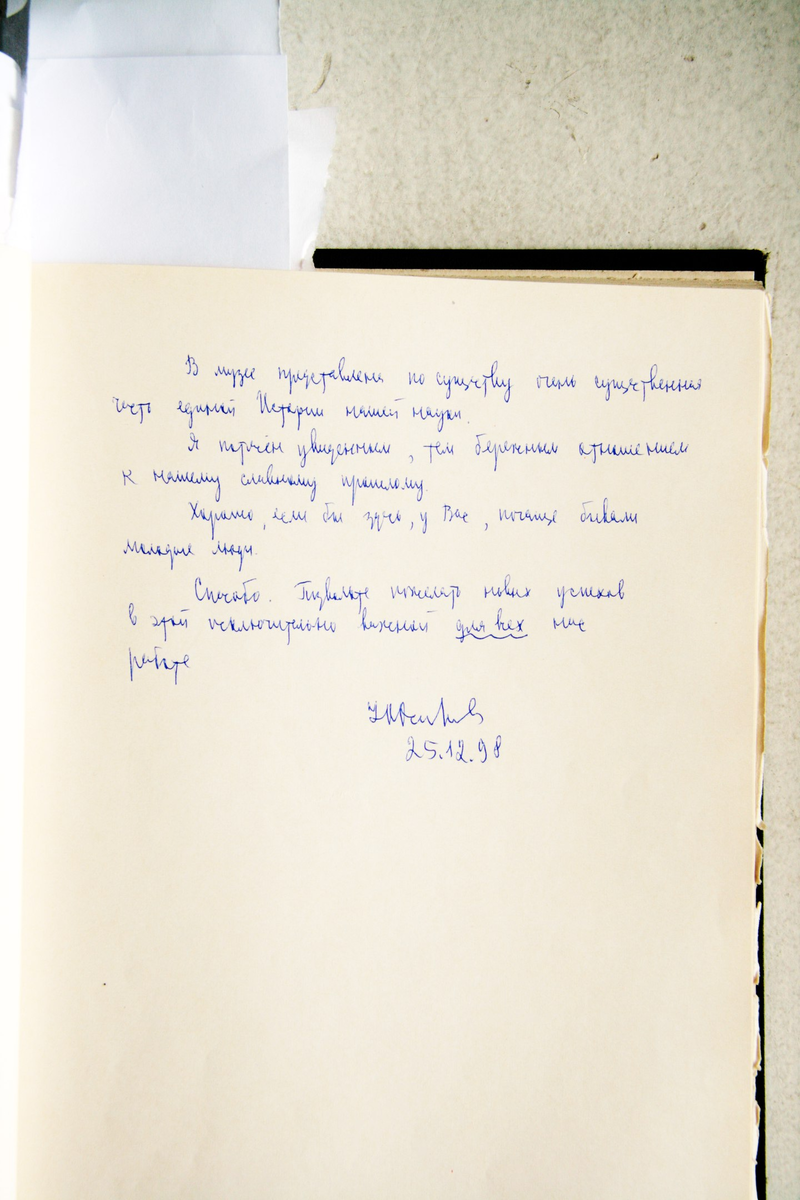 В музее представлена по существу очень существенная
часть единой Истории нашей науки.
Я потрясён увиденным, тем бережным отношением
к нашему славному прошлому.
Хорошо, если бы здесь, у Вас, почаще бывали
молодые люди.
Спасибо. Позвольте пожелать новых успехов
в этой исключительно важной для всех нас
работе
25.12.98